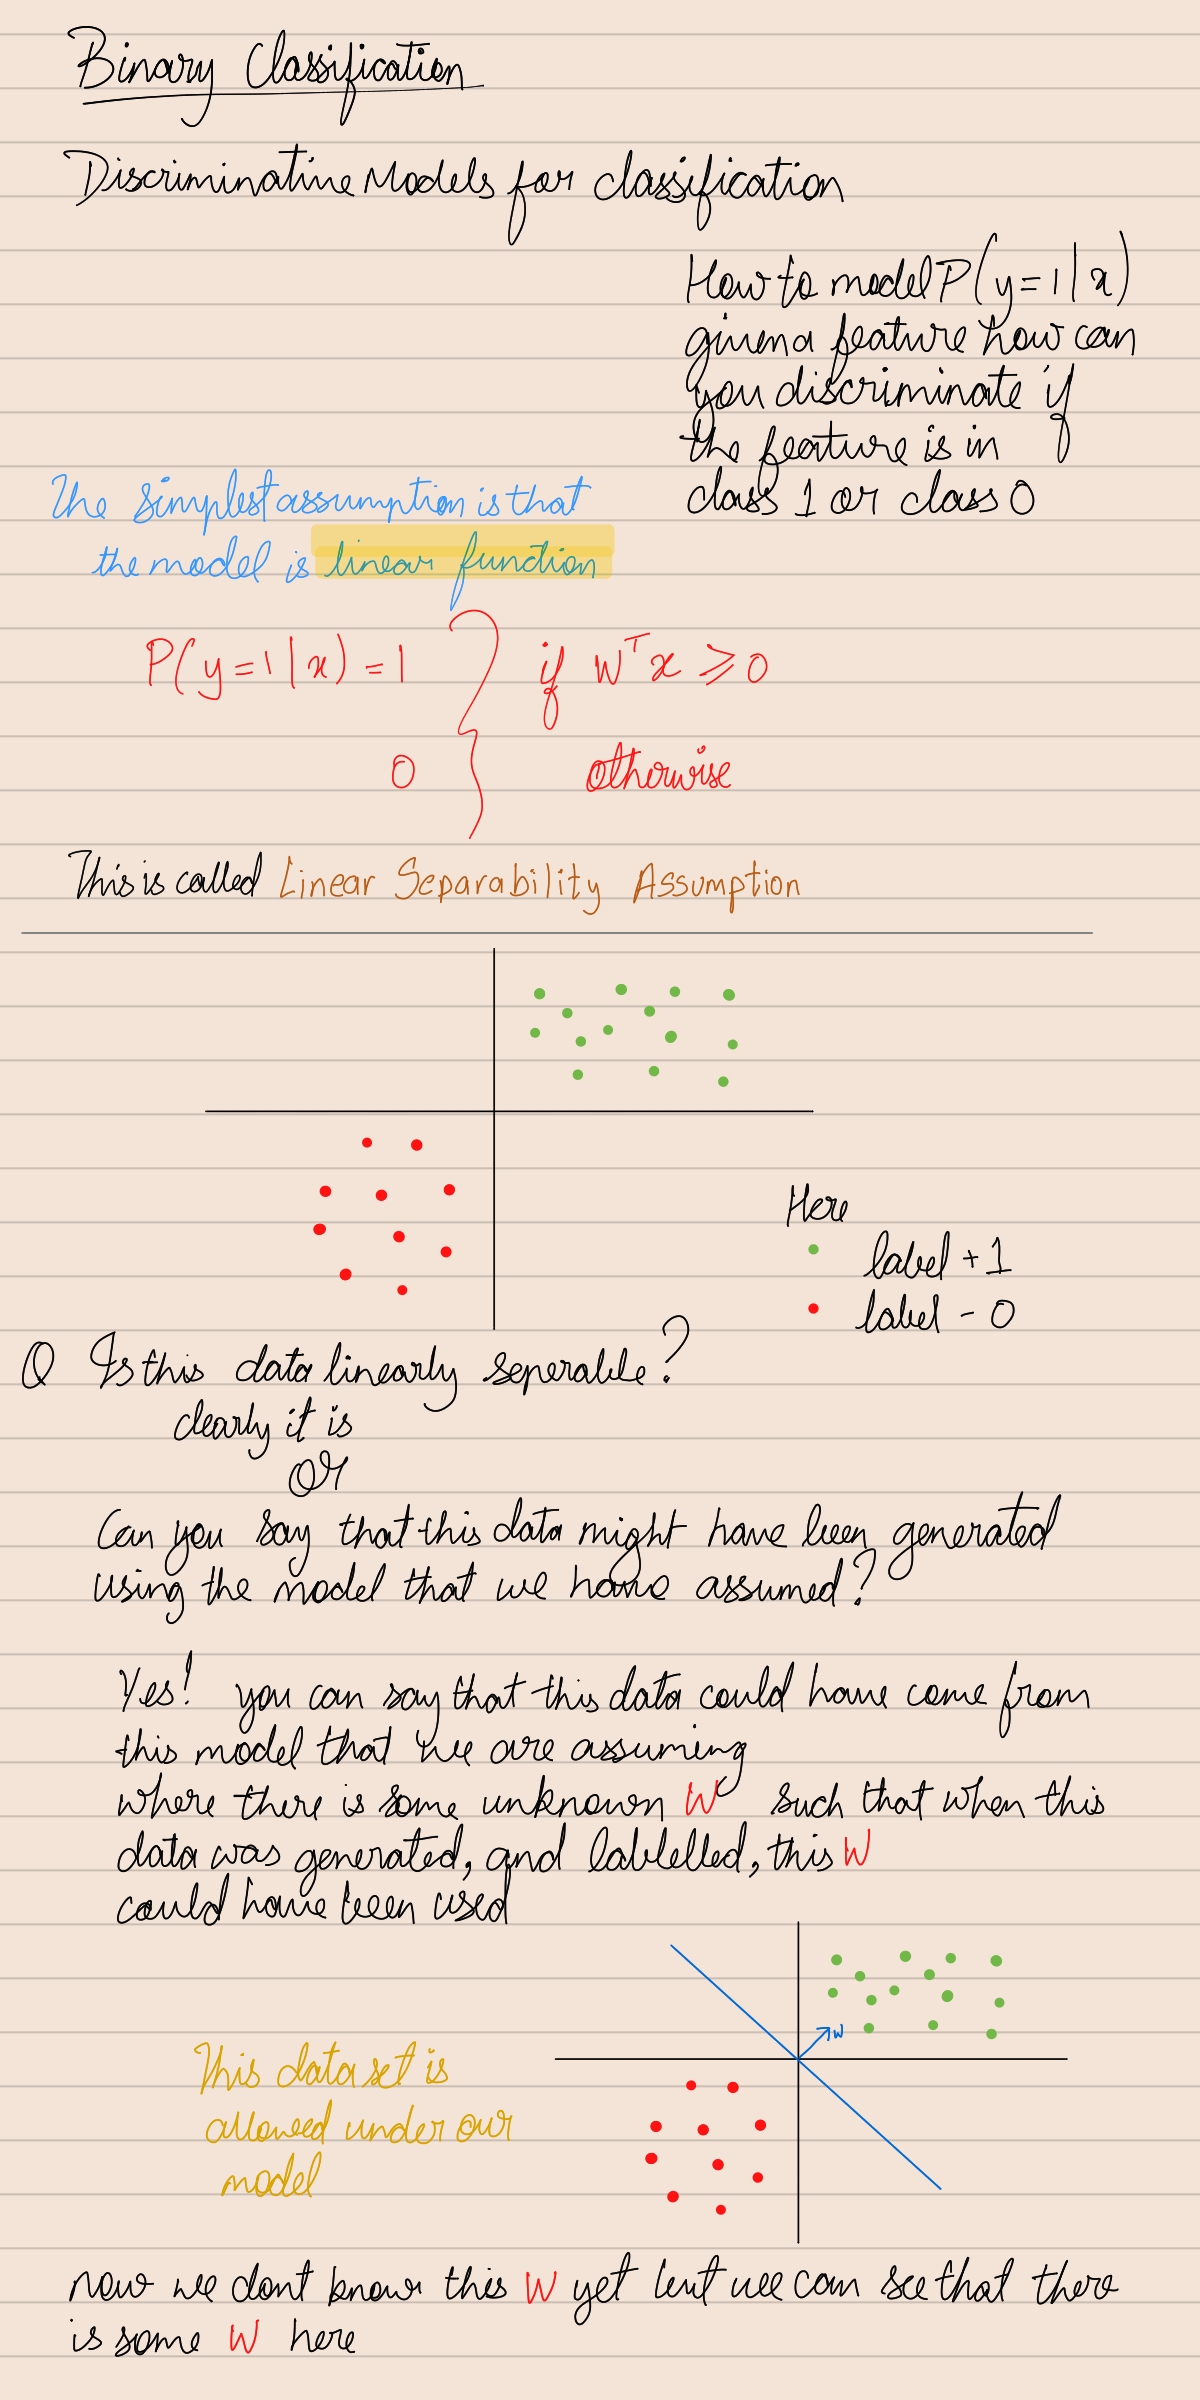 Binary Classification
Discriminative Models for classification
How to model P(y=1|x)
given a feature how can
you discriminate if
the feature is in
class 1 or class 0
The simplest assumption is that
the model is linear function
P(y=1|x) = 1 } if Wᵀx ⩾ 0
0 otherwise
This is called Linear Separability Assumption
Here
label + 1
label - 0
Q Is this data linearly seperable?
clearly it is
or
Can you say that this data might have been generated
using the model that we have assumed?
Yes! you can say that this data could have come from
this model that we are assuming
where there is some unknown W such that when this
data was generated, and lablelled, this W
could have been used
W
This dataset is
allowed under our
model
now we dont know this W yet but we can see that there
is some W here